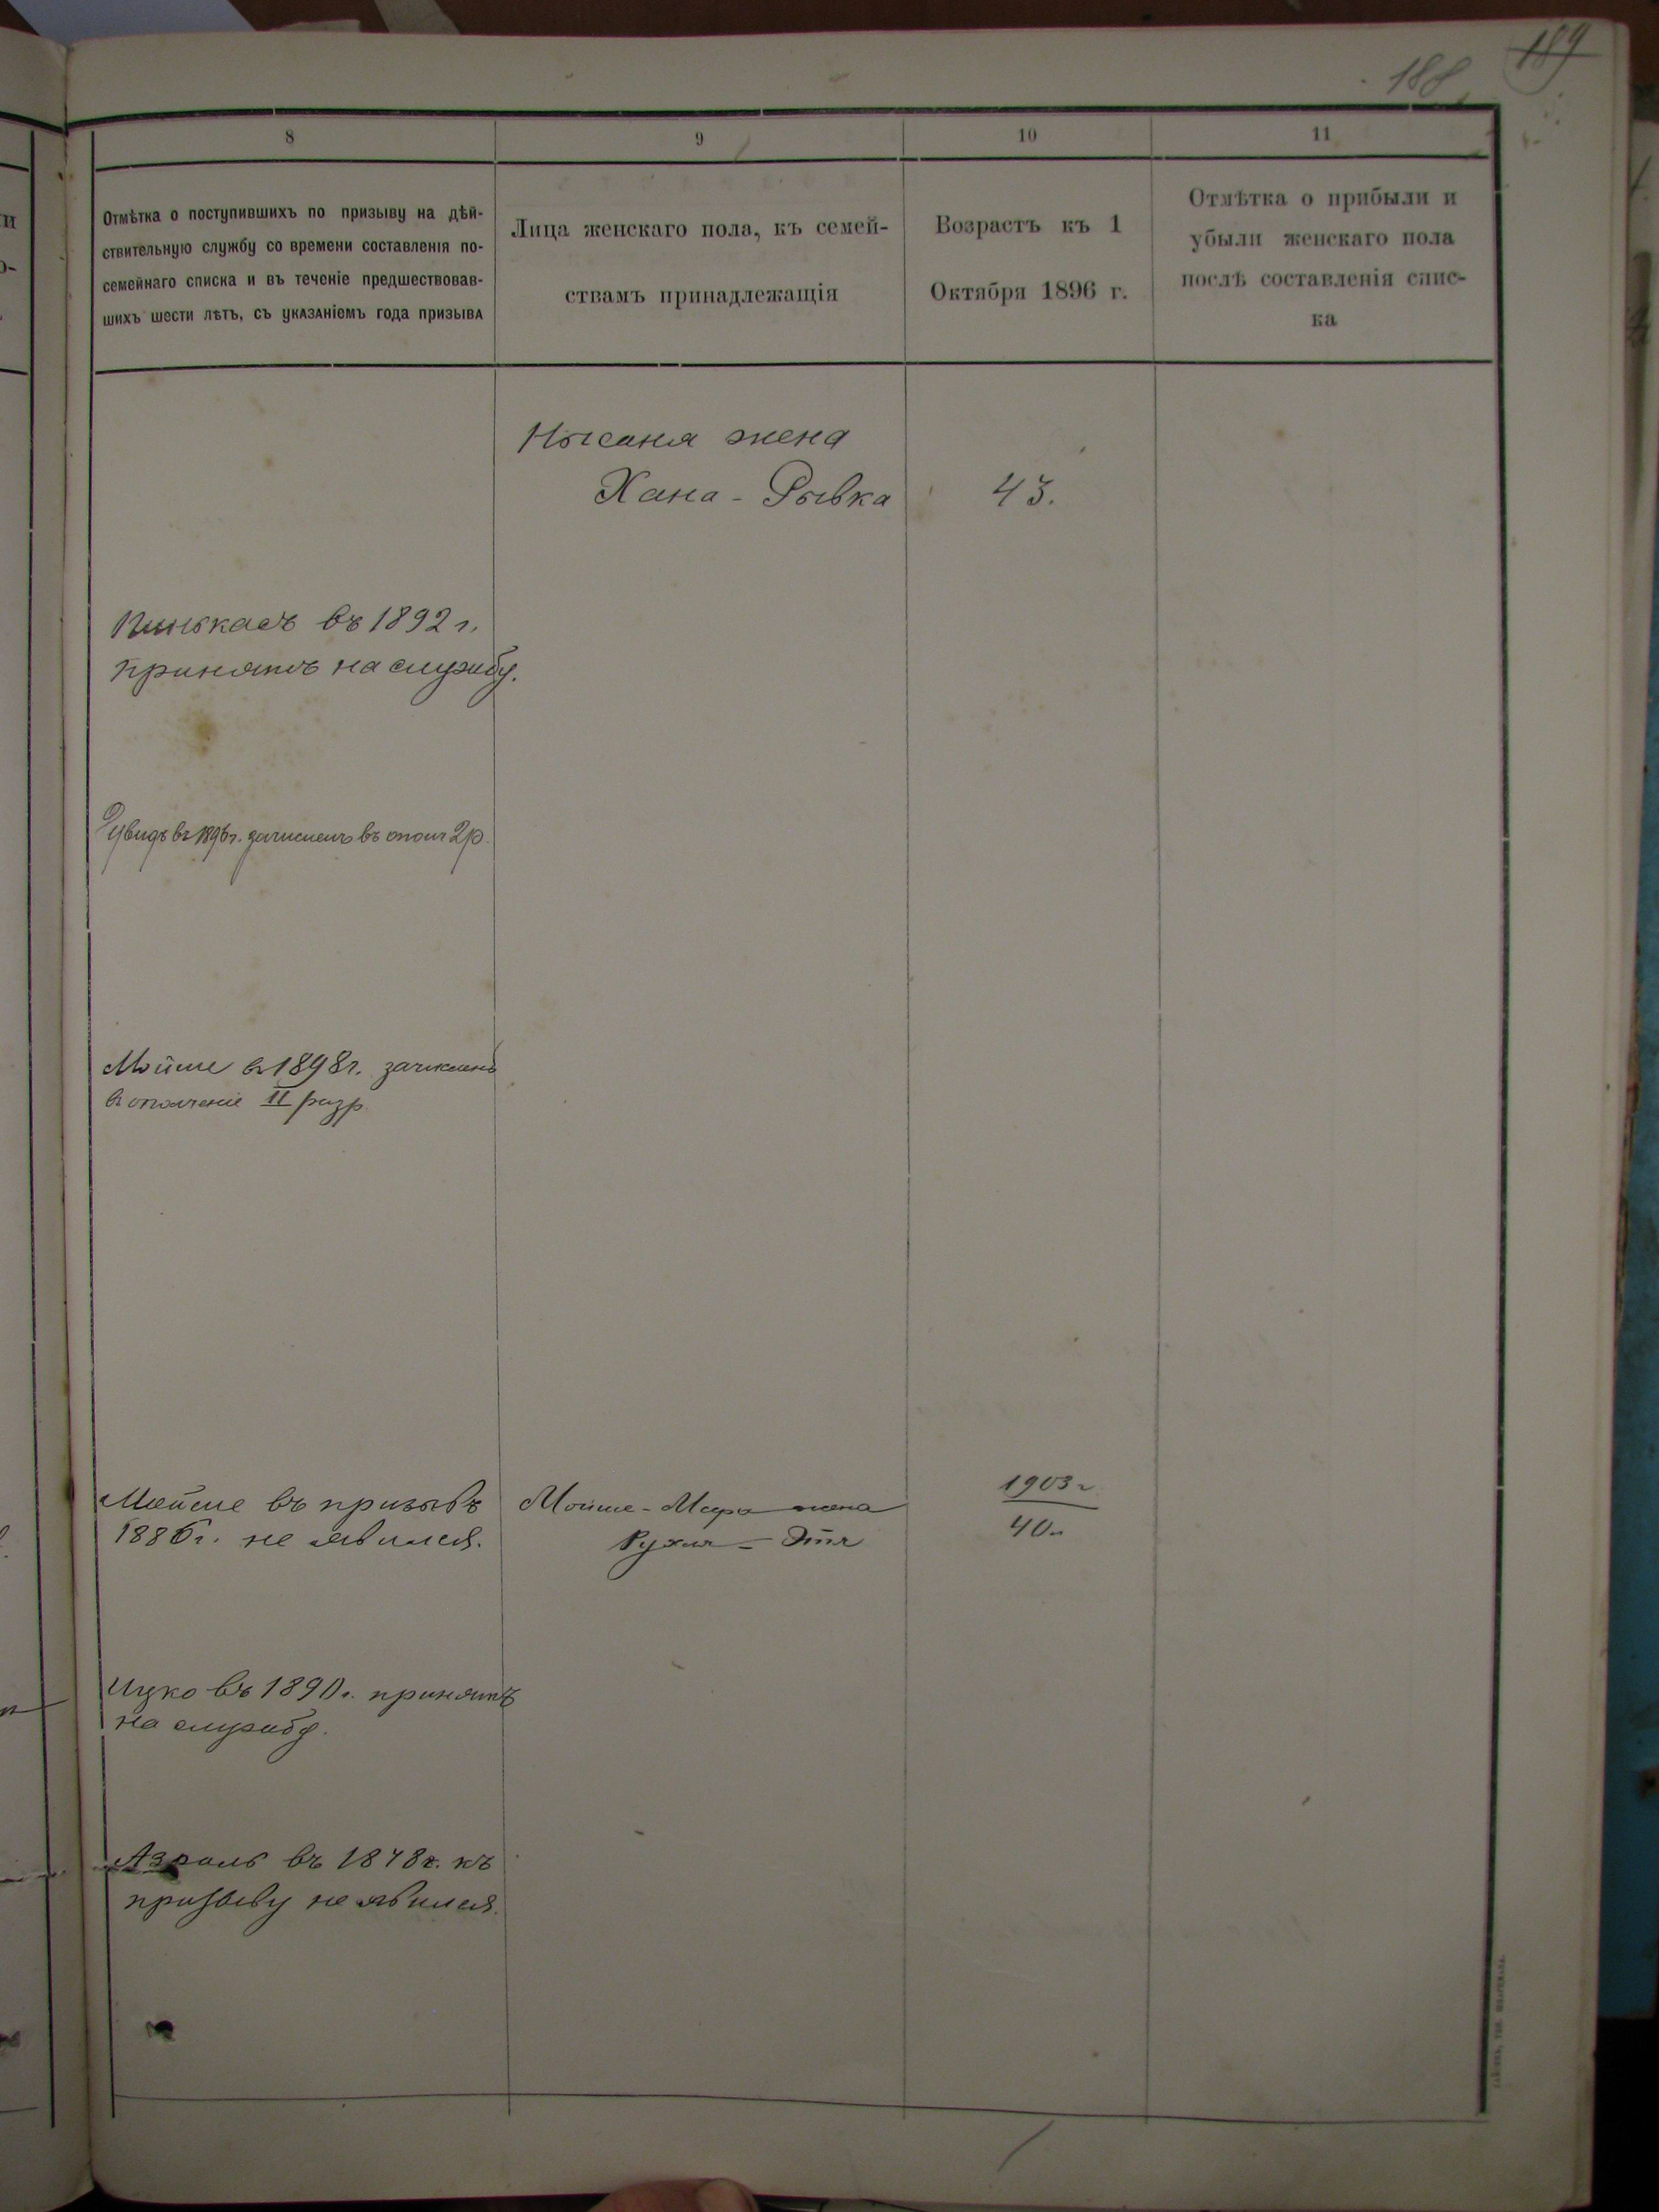 189
188
8
9
10
11
Отмѣтка о поступившихъ по призыву на дѣй-
ствительную службу со времени составленія по-
семейнаго списка и въ теченіе предшествовав-
шихъ шести лѣтъ, съ указаніемъ года призыва
Лица женскаго пола, къ семей-
ствамъ принадлежащія
Возрастъ къ 1
Октября 1896 г.
Отмѣтка о прибыли и
убыли женскаго пола
послѣ составленія спис-
ка
жена
Хана - Рывка
43.
Пинькасъ въ 1892 г.
принятъ на службу.
въ 1896 г. зачисленъ въ опол 2 р.
Мойше въ 1898 г. зачисленъ
въ ополченіе II разр
Мойше въ призывъ
1886 г. не явился.
Мойше - жена
Рухля - Этя
1903 г
40
Ицко въ 1890 г. принятъ
на службу.
въ 1878 г. къ
призыву не явился.